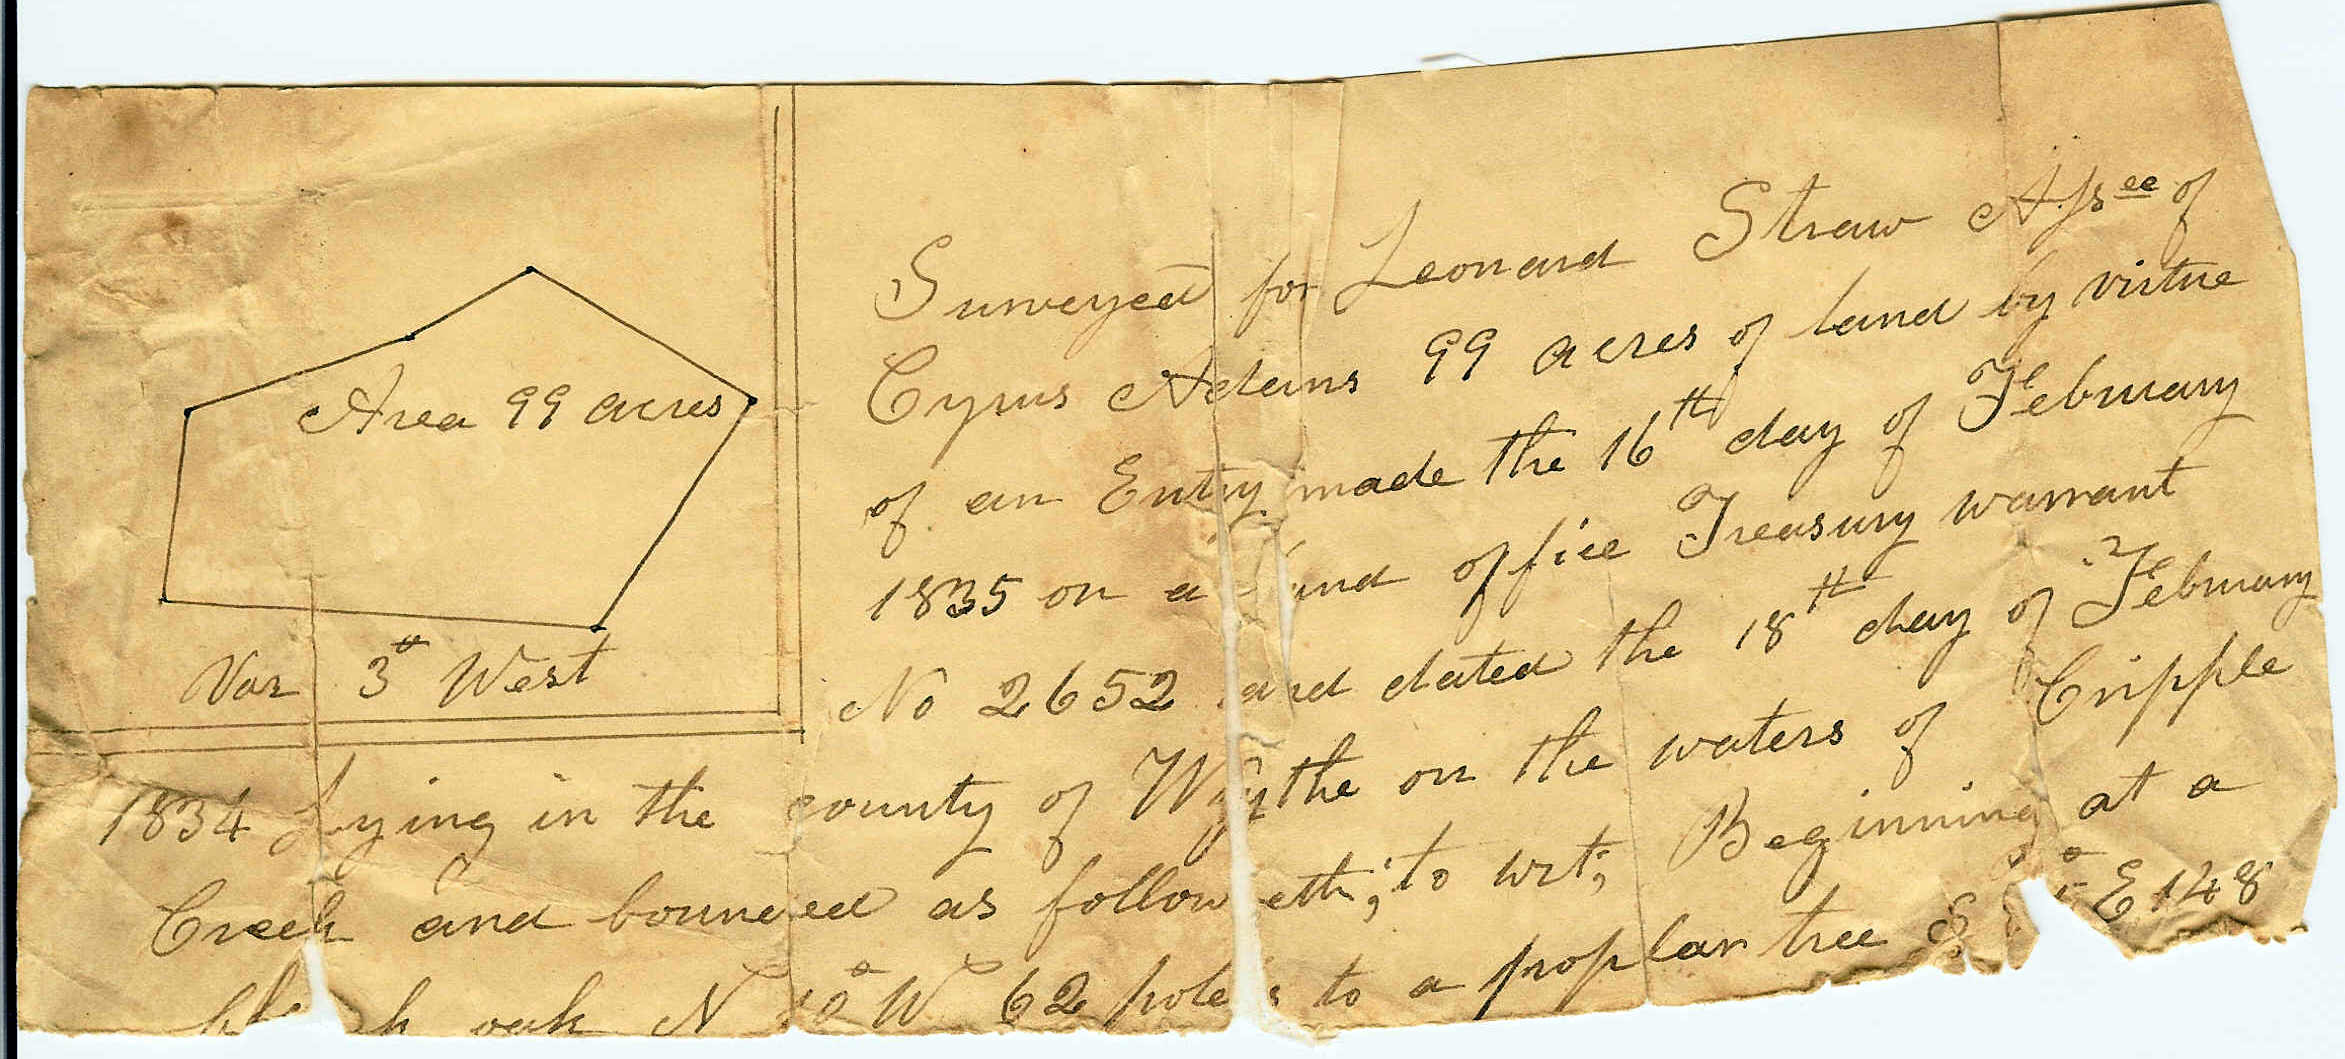 Area 99 acres
Var 3° West
Surveyed for Leonard Straw Assee of
Cyrus Adams 99 acres of land by virtue
of an Entry made the 16th day of February
1835 on a land office Treasury warrant
No 2652 and dated the 18th day of February
1834 Lying in the county of Wythe on the waters of Cripple
Creek and bounded as followeth; to wit; Beginning at a
black oak N W 62 poles to a proplar tree S E 148